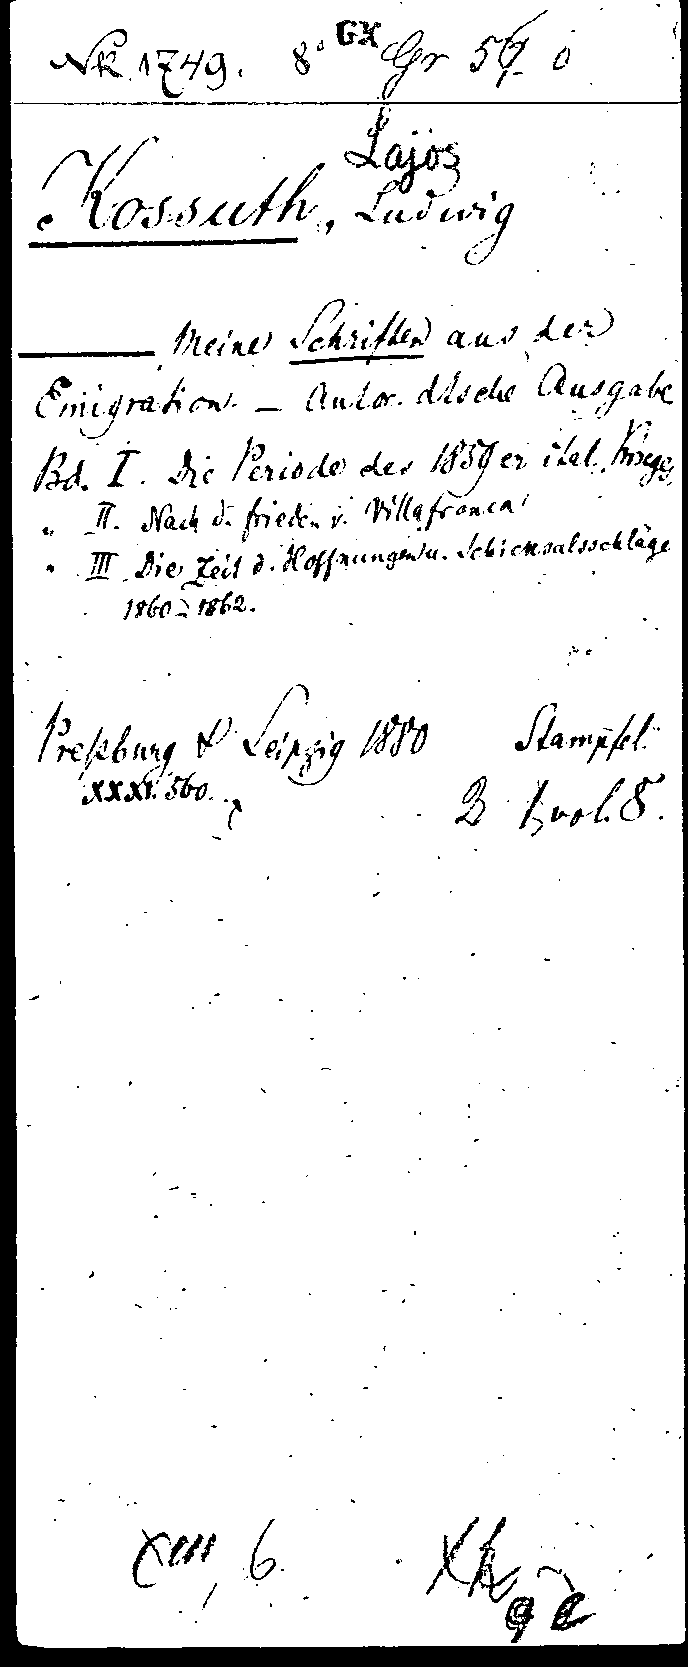 NK 1749. 8° GX Gr 567 o
Lajos
Kossuth, Ludwig
Meine Schriften aus der
Emigration. – Autor. dtsche Ausgabe
Bd. I. Die Periode des 1859er ital. Krieges
„ II. Nach d. Frieden v. Villafranca
„ III Die Zeit d. Hoffnungen u. Schicksalsschläge
1860–1862.
Preßburg & Leipzig 1880 Stampfel.
XXXI. 560. vol. 8.
XIII, 6